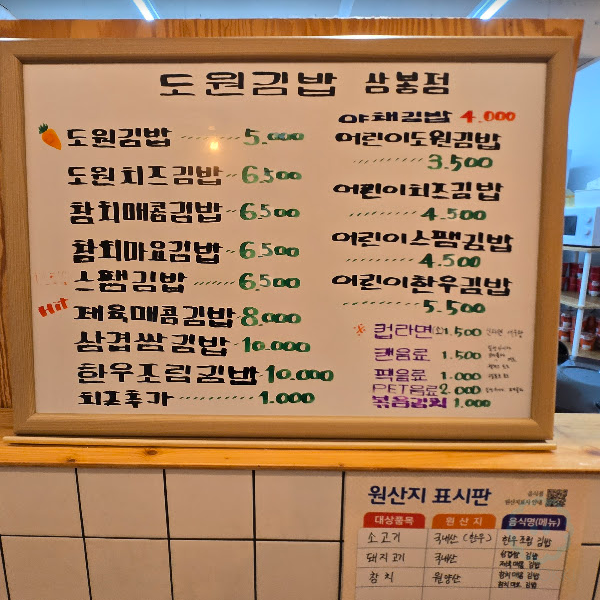 도원김밥 삼봉점
도원김밥 5,000
도원치즈김밥 6,500
참치매콤김밥 6,500
참치마요김밥 6,500
스팸김밥 6,500
Hit 제육매콤김밥 8,000
삼겹쌈김밥 10,000
한우조림김밥 10,000
치즈추가 1,000
야채김밥 4,000
어린이도원김밥
3,500
어린이치즈김밥
4,500
어린이스팸김밥
4,500
어린이한우김밥
5,500
컵라면 1,500
캔음료 1,500
팩음료 1,000
PET음료 2,000
볶음김치 1,000
원산지 표시판
대상품목 원산지 음식명(메뉴)
소고기 국내산 (한우) 한우조림 김밥
돼지고기 국내산 삼겹쌈 김밥
제육매콤 김밥
참치 원양산 참치매콤 김밥
참치마요 김밥